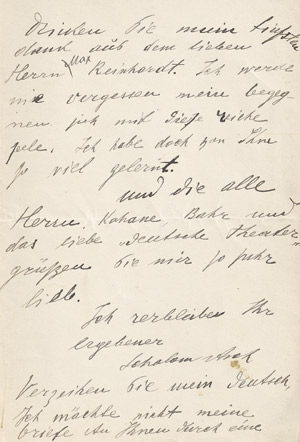 Richten Sie mein tiefsten
dank aus dem lieben
Herrn Max Reinhardt. Ich werde
nie vergessen mein begeg-
nen mit diese
Ich habe doch von Ihm
so viel gelernt.
und die alle
Herrn. Kahane Bahr und
das liebe „deutsche theater"
grüßen Sie mir so sehr
lieb.
Ich verbleibe Ihr
ergebener
Schalom Asch
Verzeihen Sie mein deutsch,
Ich möchte nicht meine
briefe An Ihnen durch eine